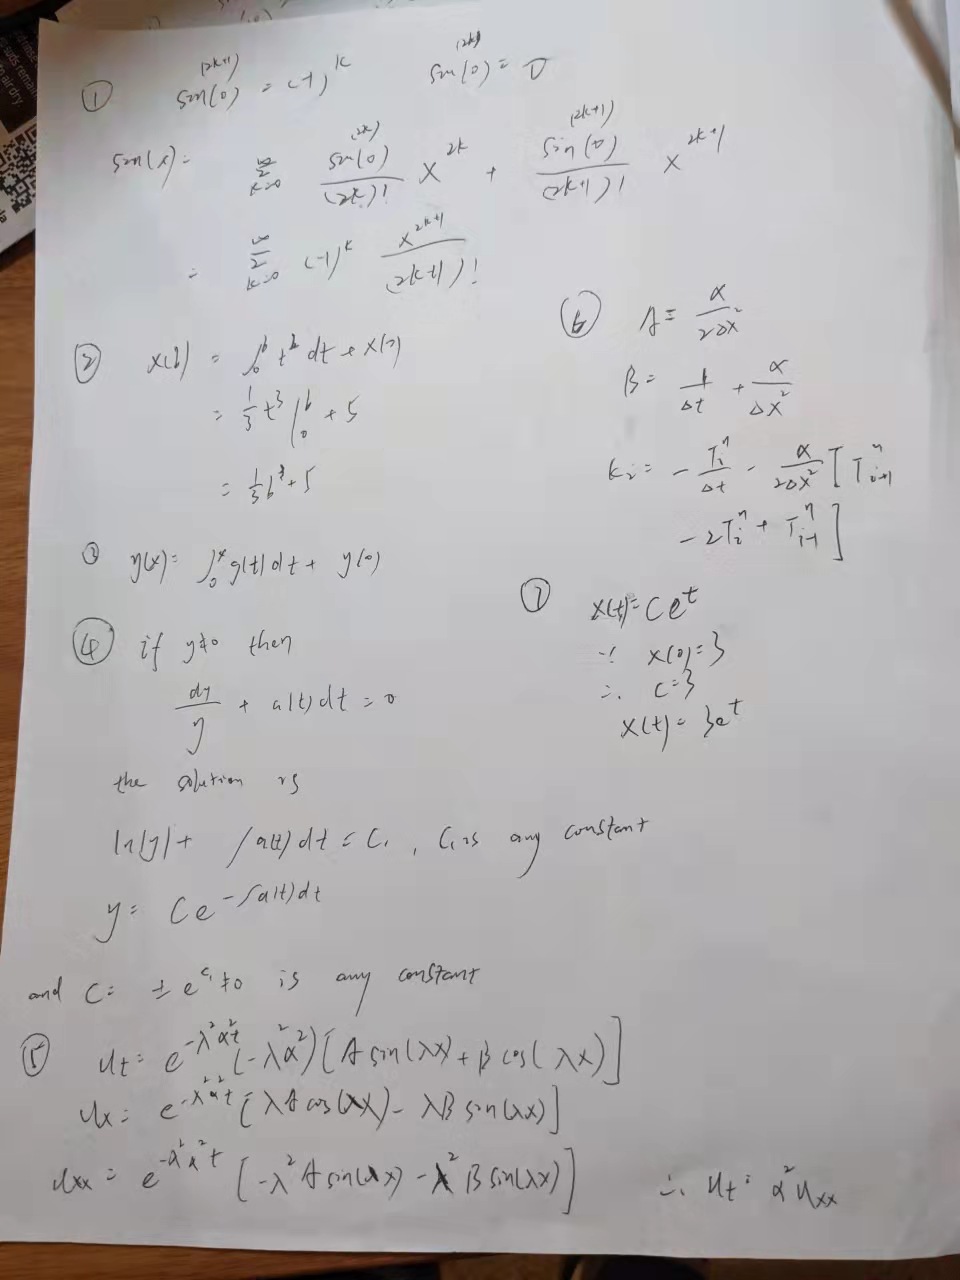 ① sin^(2k+1)(0) = (-1)^k sin^(2k)(0) = 0
sin(x) = Σ_{k=0}^∞ sin^(2k)(0)/(2k)! x^{2k} + sin^(2k+1)(0)/(2k+1)! x^{2k+1}
= Σ_{k=0}^∞ (-1)^k x^{2k+1}/(2k+1)!
② x(b) = ∫_0^b t^2 dt + x(0)
= 1/3 t^3 |_0^b + 5
= 1/3 b^3 + 5
③ y(x) = ∫_0^x g(t) dt + y(0)
④ if y≠0 then
dy/y + a(t) dt = 0
the solution is
ln|y| + ∫a(t) dt = C₁, C₁ is any constant
y = C e^{-∫a(t)dt}
and C = ± e^{C₁} ≠0 is any constant
⑤ u_t = e^{-λ²α²t} (-λ²α²) [A sin(λx) + B cos(λx)]
u_x = e^{-λ²α²t} [λA cos(λx) - λB sin(λx)]
u_xx = e^{-α²α²t} [-λ² A sin(λx) - λ² B sin(λx)] ∴ u_t = α² u_xx
⑥ A = α/2Δx²
B = 1/Δt + α/Δx²
K_i = - T_i^n/Δt - α/2Δx² [T_{i+1}^n
- 2T_i^n + T_{i-1}^n]
⑦ x(t) = C e^t
∵ x(0) = 3
∴ C = 3
x(t) = 3e^t